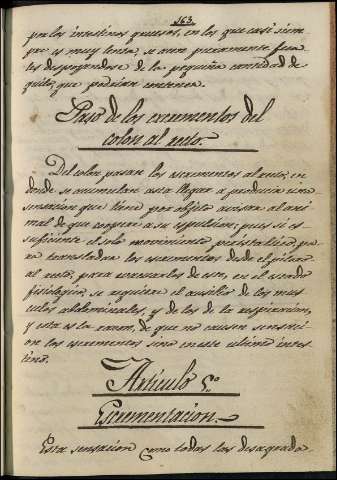 163
por los intestinos gruesos, en los que casi siem
pre es muy lenta, se unen puramente para
despojandose de la pequeña cantidad de
quilo, que podrian contener.
Paso de los escrementos del
colon al recto.
Del colon pasan los escrementos al recto, en
donde se acumulan asta llegar a producir una
sensacion que tiene por objeto avisar al ani
mal de que coopere a su espulsion; pues si es
suficiente el solo movimiento peristaltico, pa
ra trasladar los escrementos desde el
al recto, para evacuarlos de este, en el estado
fisiologico, se requiere el ausilio de los mus
culos abdominales, y de los de la respiracion,
y esta es la razon, de que no causen sensacion
los escrementos sino en este ultimo intes
tino.
Artículo 5.º
Escrementacion.
Esta sensacion como todas las desagrada